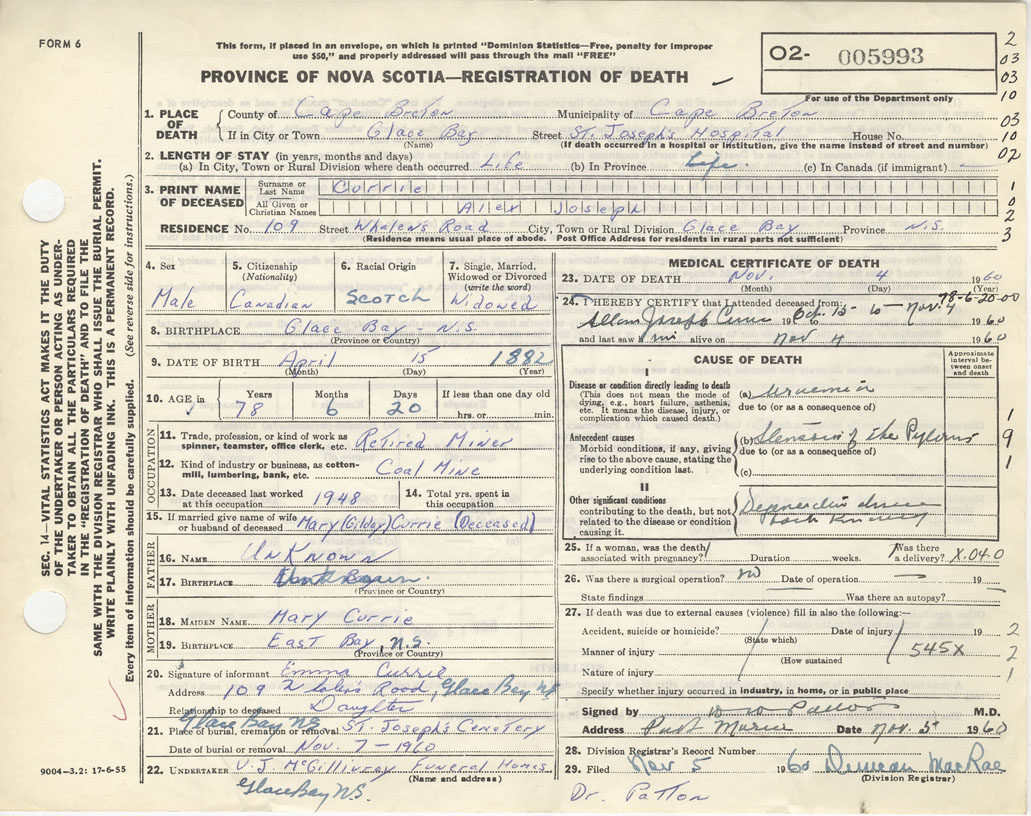 FORM 6
This form, if placed in an envelope, on which is printed "Dominion Statistics—Free, penalty for improper
use $50," and properly addressed will pass through the mail "FREE"
PROVINCE OF NOVA SCOTIA—REGISTRATION OF DEATH
O2- 005993
For use of the Department only
2
03
03
10
03
10
02
1
0
2
3
SEC. 14—VITAL STATISTICS ACT MAKES IT THE DUTY
OF THE UNDERTAKER OR PERSON ACTING AS UNDER-
TAKER TO OBTAIN ALL THE PARTICULARS REQUIRED
IN THE "REGISTRATION OF DEATH" AND TO FILE THE
SAME WITH THE DIVISION REGISTRAR WHO SHALL ISSUE THE BURIAL PERMIT.
WRITE PLAINLY WITH UNFADING INK. THIS IS A PERMANENT RECORD.
Every item of information should be carefully supplied. (See reverse side for instructions.)
1. PLACE OF DEATH
County of Cape Breton Municipality of Cape Breton
If in City or Town Glace Bay Street St. Joseph's Hospital House No.
(Name) (If death occurred in a hospital or institution, give the name instead of street and number)
2. LENGTH OF STAY (in years, months and days)
(a) In City, Town or Rural Division where death occurred Life (b) In Province Life (c) In Canada (if immigrant) —
3. PRINT NAME OF DECEASED
Surname or Last Name Currie
All Given or Christian Names Alex Joseph
RESIDENCE No. 109 Street Whalens Road City, Town or Rural Division Glace Bay Province N.S.
(Residence means usual place of abode. Post Office Address for residents in rural parts not sufficient)
4. Sex 5. Citizenship (Nationality) 6. Racial Origin 7. Single, Married, Widowed or Divorced (write the word)
Male Canadian Scotch Widowed
8. BIRTHPLACE Glace Bay - N.S.
(Province or Country)
9. DATE OF BIRTH April 15 1882
(Month) (Day) (Year)
10. AGE in Years Months Days If less than one day old
78 6 20 hrs. or min.
OCCUPATION
11. Trade, profession, or kind of work as spinner, teamster, office clerk, etc. Retired Miner
12. Kind of industry or business, as cotton-mill, lumbering, bank, etc. Coal Mine
13. Date deceased last worked at this occupation 1948
14. Total yrs. spent in this occupation
15. If married give name of wife or husband of deceased Mary (Gilday) Currie (Deceased)
FATHER
16. NAME Unknown
17. BIRTHPLACE
(Province or Country)
MOTHER
18. MAIDEN NAME Mary Currie
19. BIRTHPLACE East Bay, N.S.
(Province or Country)
20. Signature of informant Emma Currie
Address 109 Road, Glace Bay NS
Relationship to deceased Daughter
Glace Bay NS
21. Place of burial, cremation or removal St. Joseph's Cemetery
Date of burial or removal Nov. 7 - 1960
22. UNDERTAKER V.J. McGillivray Funeral Homes
(Name and address)
Glace Bay N.S.
9004-3.2: 17-6-55
MEDICAL CERTIFICATE OF DEATH
23. DATE OF DEATH Nov. 4 1960
(Month) (Day) (Year)
78-6-20-00
24. I HEREBY CERTIFY that I attended deceased from:
Joseph Oct. 15 to Nov 4 1960
and last saw him alive on Nov 4 1960
CAUSE OF DEATH
Approximate interval between onset and death
I
Disease or condition directly leading to death
(This does not mean the mode of dying, e.g., heart failure, asthenia, etc. It means the disease, injury, or complication which caused death.)
(a) Uraemia
due to (or as a consequence of)
Antecedent causes
Morbid conditions, if any, giving rise to the above cause, stating the underlying condition last.
(b) Stenosis of the Pylorus
due to (or as a consequence of)
(c)
II
Other significant conditions contributing to the death, but not related to the disease or condition causing it.
1
9
1
25. If a woman, was the death associated with pregnancy? Duration weeks. Was there a delivery? X.04.0
26. Was there a surgical operation? no Date of operation — 19
State findings Was there an autopsy?
27. If death was due to external causes (violence) fill in also the following:—
Accident, suicide or homicide? Date of injury 19
(State which)
Manner of injury 545X
(How sustained)
Nature of injury
Specify whether injury occurred in industry, in home, or in public place
2
2
1
Signed by Patton M.D.
Address Port Morien Date Nov. 5 1960
28. Division Registrar's Record Number
29. Filed Nov 5 1960 Duncan MacRae
(Division Registrar)
Dr. Patton